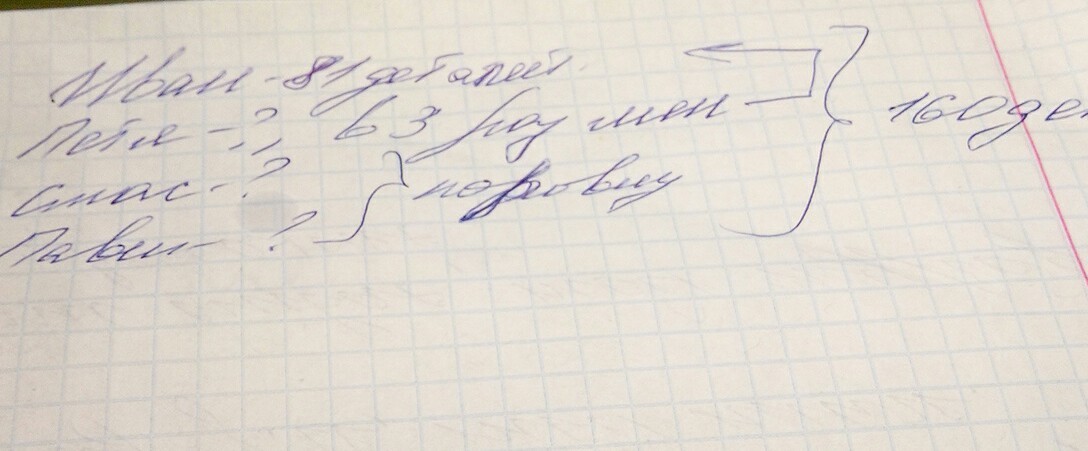 Иван - 81 деталей.
Петя - ?, в 3 раз мен
Стас - ?
Павел - ? } поровну
160 де